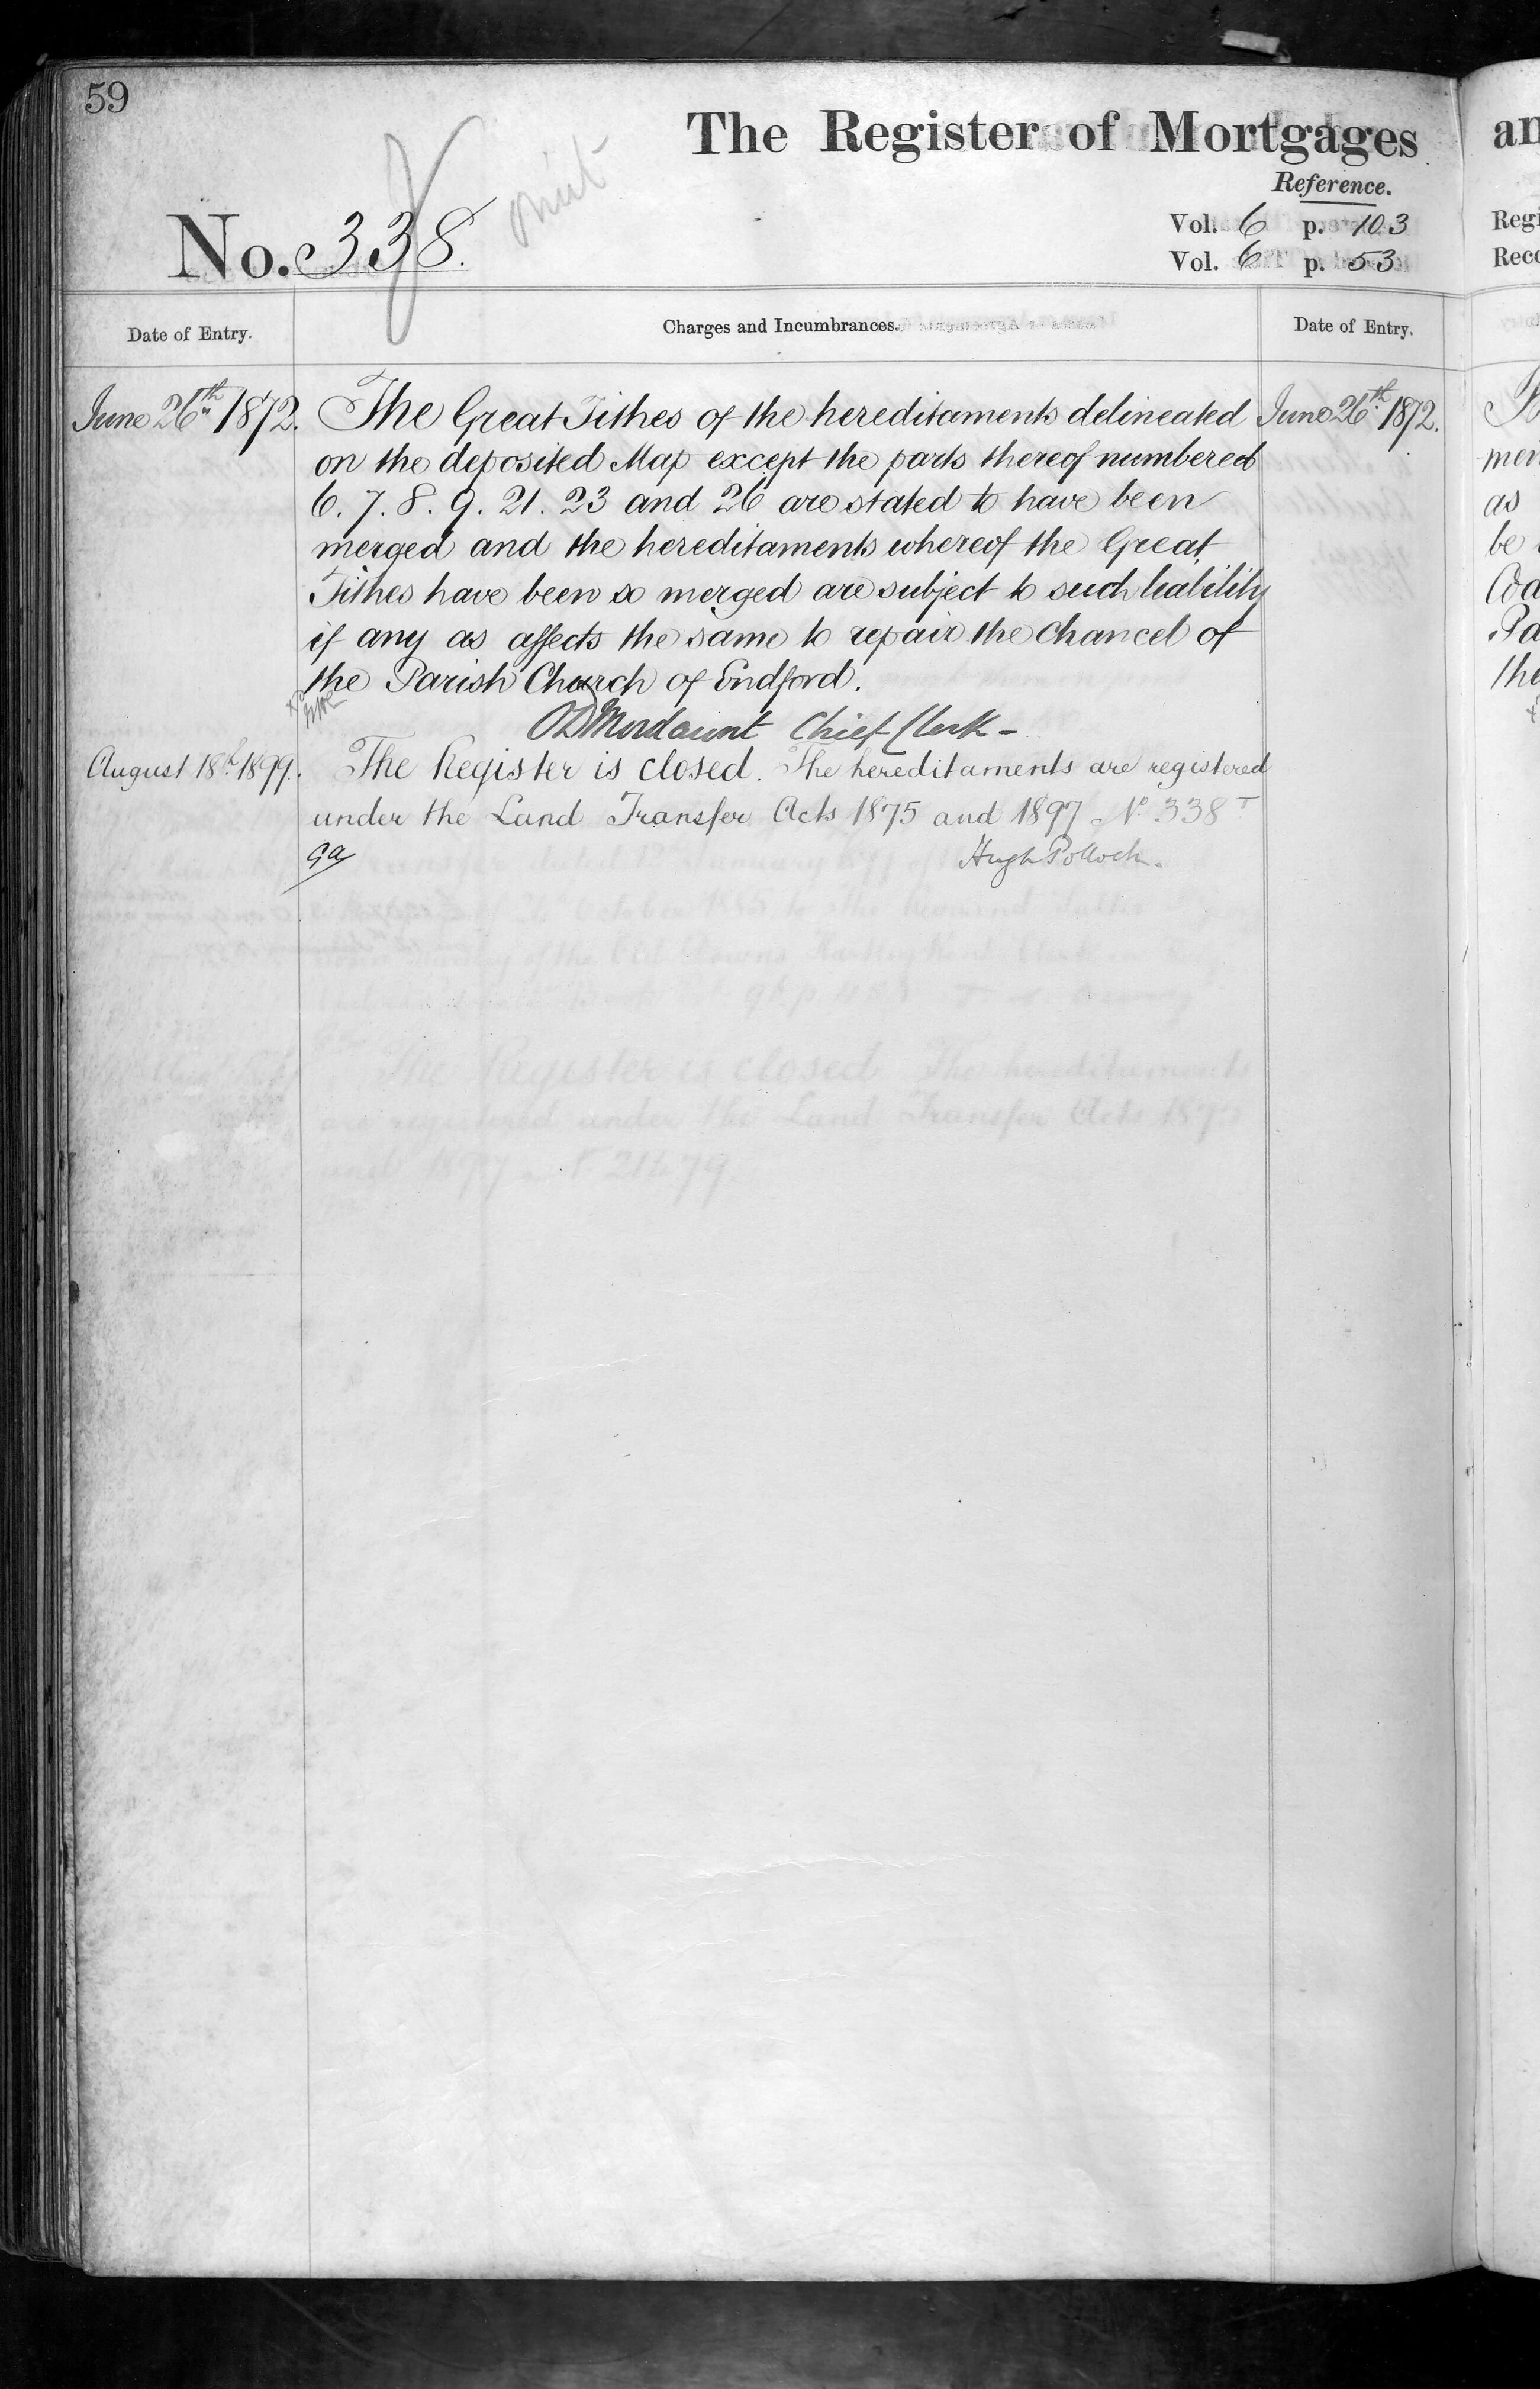 59
The Register of Mortgages
Reference.
No. 338.
omit
Vol. 6 p. 103
Vol. 6 p. 53
Date of Entry.
Charges and Incumbrances.
Date of Entry.
June 26th 1872.
The Great Tithes of the hereditaments delineated
June 26th 1872.
on the deposited Map except the parts thereof numbered
6. 7. 8. 9. 21. 23 and 26 are stated to have been
merged and the hereditaments whereof the Great
Tithes have been so merged are subject to such liability
if any as affects the same to repair the Chancel of
the Parish Church of Endford.
Mordaunt Chief Clerk -
August 18th 1899.
The Register is closed. The hereditaments are registered
under the Land Transfer Acts 1875 and 1897 No. 338 T
Hugh Pollock.
The Register is closed The hereditaments
are registered under the Land Transfer Acts 1875
and 1897
an
Regi
Reco
mer
as
be
the